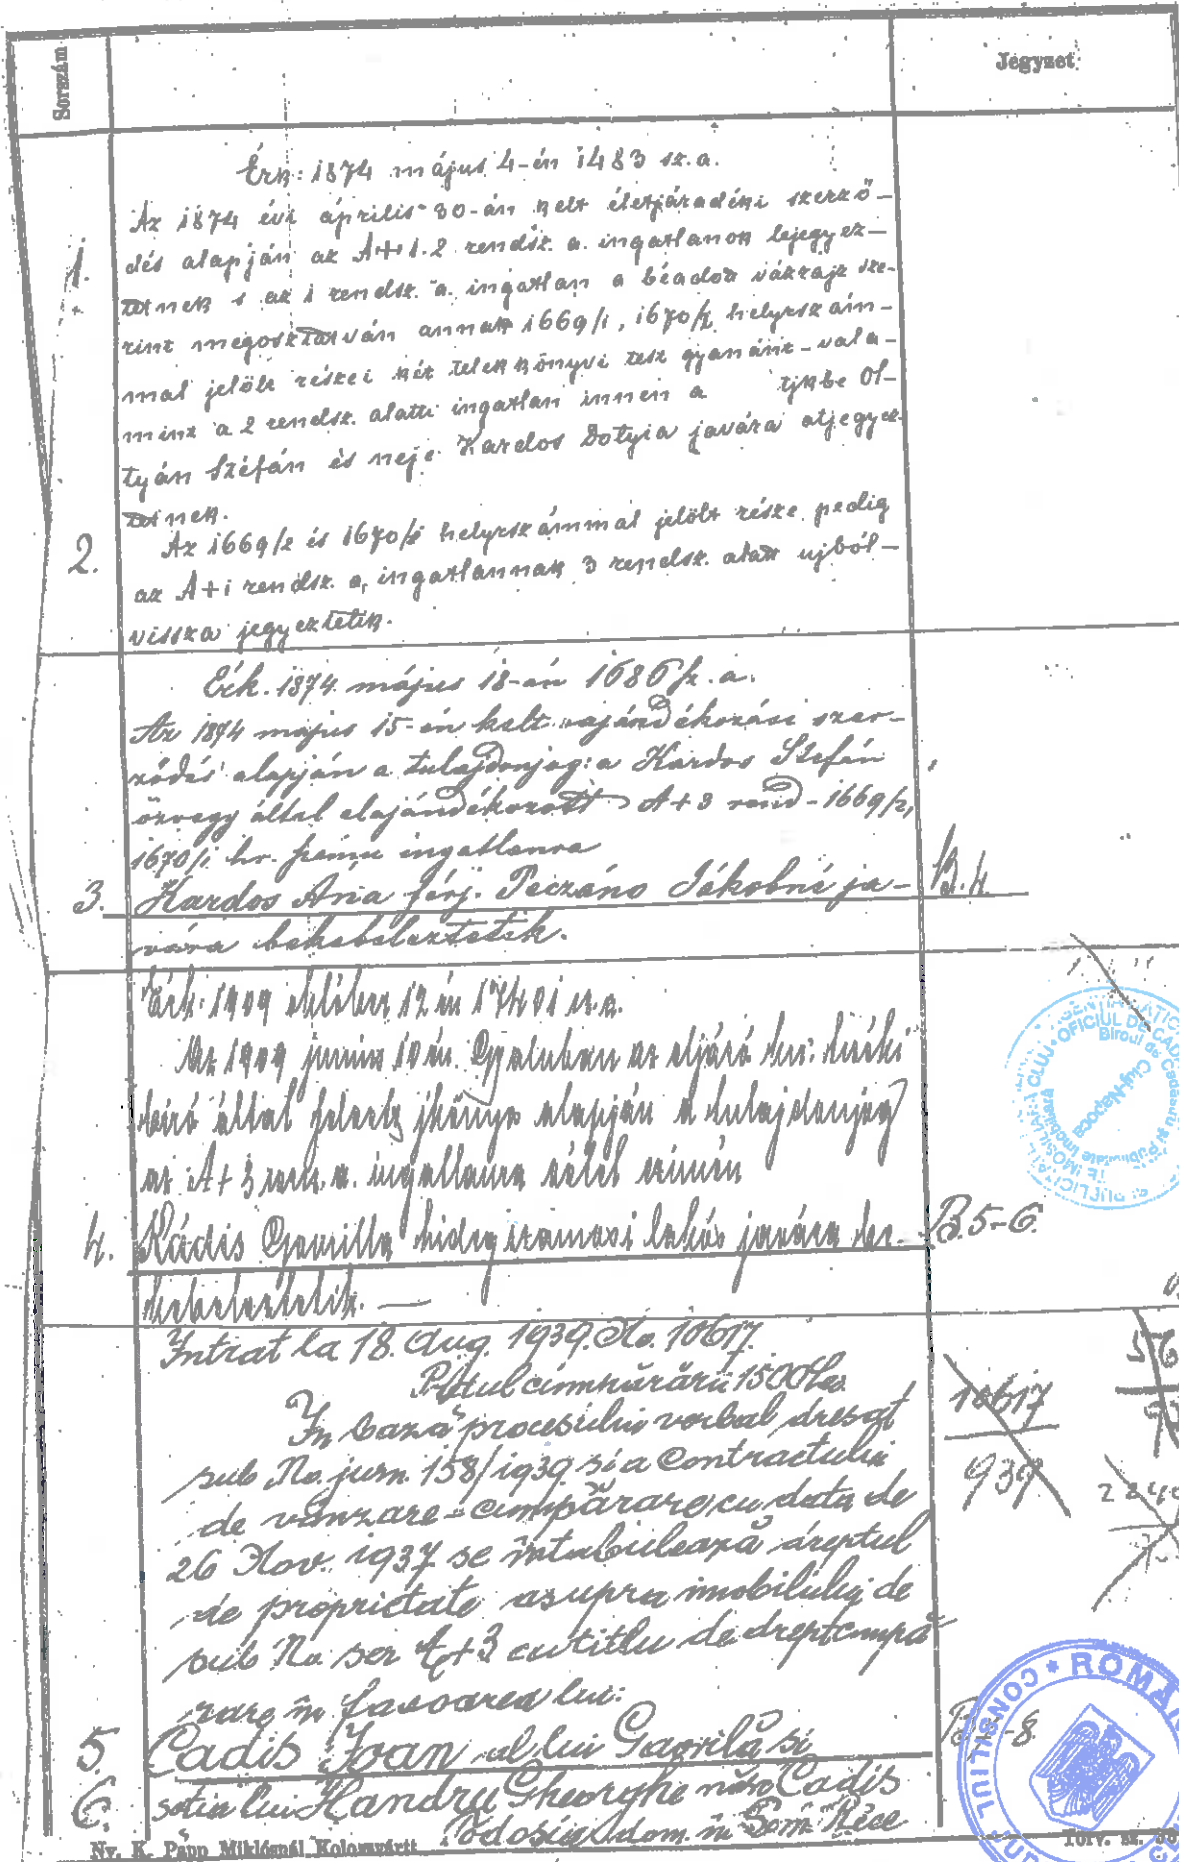 Sorszám
Jegyzet
Érk: 1874 május 4-én 1483 sz. a.
Az 1874 évi április 30-án kelt életjáradéki szerző-
dés alapján az A+1.2 rendsz. a. ingatlanok lejegyez-
1.
tetnek s az 1 rendsz. a. ingatlan a béadott vázrajz sze-
rint megosztatván annak 1669/1, 1670/2 helyrszám-
mal jelölt részei két telekkönyvi test gyanánt - vala-
mint a 2 rendsz. alatti ingatlan innen a tjkbe Ol-
tyán Stéfán és neje Kardos Dotyia javára átjegyez-
tetnek.
2. Az 1669/2 és 1670/1 helyrszámmal jelölt része pedig
az A+1 rendsz. a. ingatlannak 3 rendsz. alatt ujból-
vissza jegyeztetik.
Érk. 1874 május 18-án 1686 sz. a.
Az 1874 május 15-én kelt ajándékozási szer-
ződés alapján a tulajdonjog: a Kardos Stefán
özvegy által elajándékozott A+3 rend - 1669/2,
1670/1 hr. számu ingatlanra
3. Kardos Ána férj. Peczáno Jákobné ja- B.4.
vára bekebeleztetik.
Érk. 1909 október 12 én 17401 sz. a.
Az 1909 junius 10 én Gyaluban az eljáró kir.
biró által felvett jkönyv alapján a tulajdonjog
az A+3 rend. a. ingatlanra vétel címén
4. Kádis Gavrilla hidegszamosi lakós javára be- B.5-6.
kebeleztetik. —
Intrat la 18. Aug. 1939. No. 10617.
Prețul cumpărării 1500 Lei
In baza procesului verbal dresat
10617
sub No. jurn. 158/1939 si a Contractului
939
de vânzare-cumpărare cu data de
26 Nov. 1937 se intabulează dreptul
de proprietate asupra imobilului de
sub No ser A+3 cu titlu de drept cumpă-
rare în favoarea lui:
5. Cadis Ioan al lui Gavrilă si
6. sotia lui Handru Gheorghe născ. Cadis
Todosia dom. in Som. Rece
Ny. K. Papp Miklósnál Kolozsvártt
OFICIUL DE CADASTRU
CLUJ
Biroul de Cadastru și Publicitate Imobiliară
Cluj-Napoca
ROMÂNIA
CONSILIUL